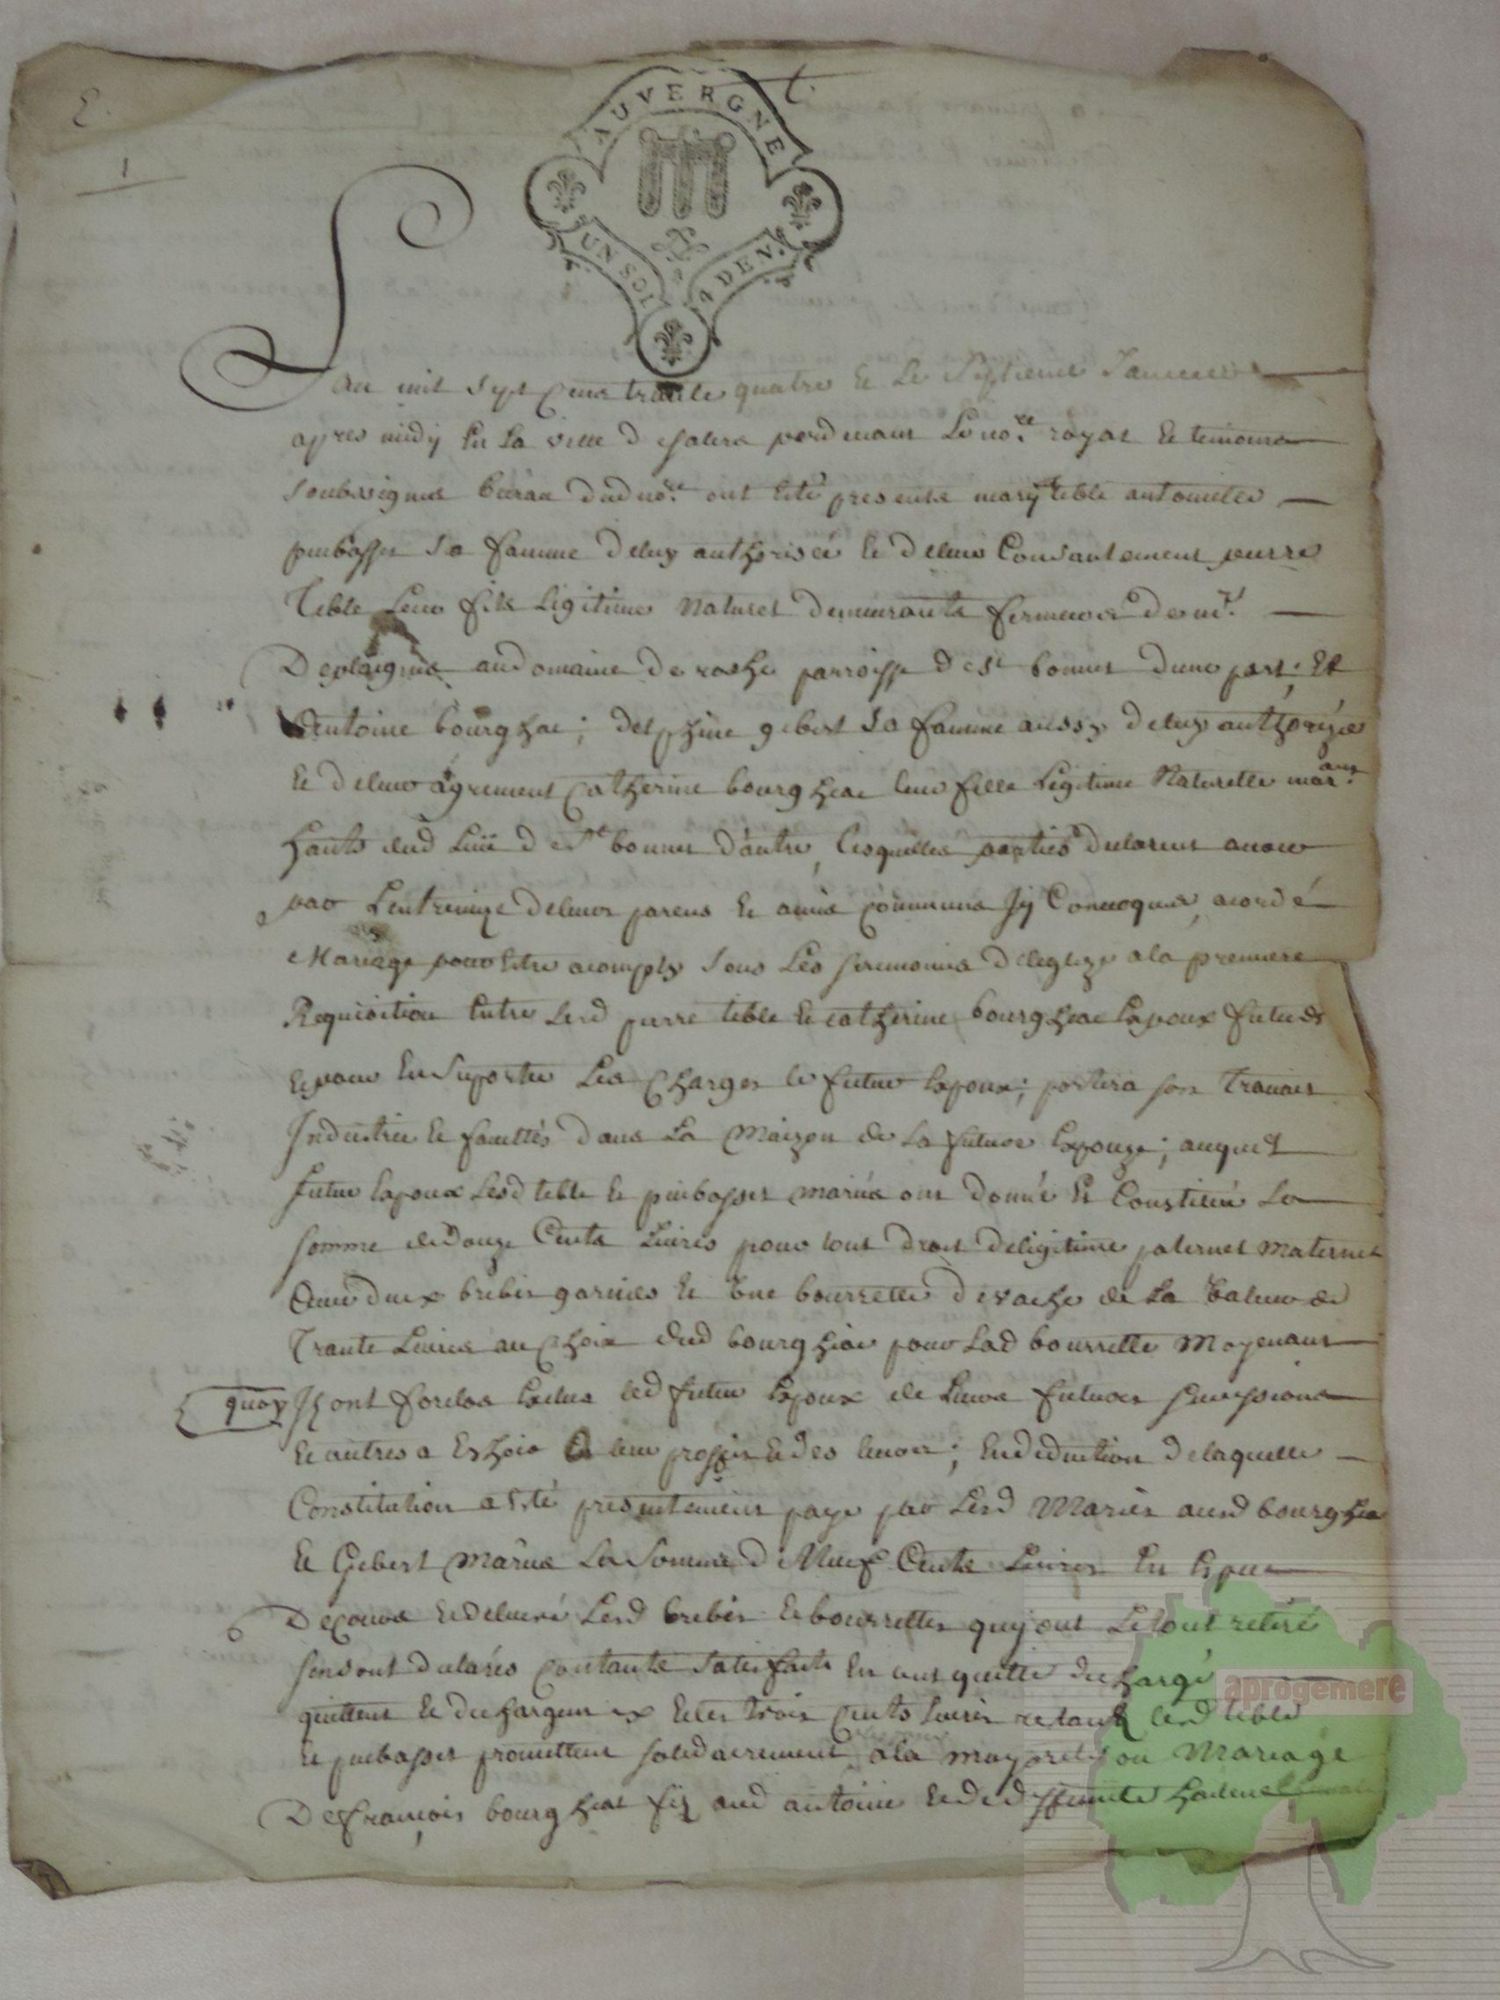 E.
1
AUVERGNE
UN SOL
4 DEN.
Lan mil sept cens trante quatre et le septieme Janvier
apres midy en la ville de salers pardevant le no.re royal et temoins
soubsignes bureau dud no.re ont esté presents mary teble antoinette
puibasset sa famme deluy authorisée et deleur Consantement pierre
Teble leur fils legitime naturel demeurants fermiers de m.r
Deplaignes audomaine de roche parroisse de st bonnet dune part, Et
Antoine bourghac; delphine gibert sa famme aussy deluy authorizée
et deleur agrement Catherine bourghac leur fille legitime Naturelle
hants dud lieu de st bonnet dautre, lesquelles parties declarent avoir
par lentremize deleur parens et amis communs Jy Convoques, acordé
Mariage pour estre acomply sous les seremonies deleglize ala premiere
Requisition entre led pierre teble et catherine bourghac Espoux futurs
et pour en suporter les charges le futur espoux; portera son travail
Industrie et facultés dans la Maizon de la future Espouze; auquel
futur Espoux lesd teble et puibasset mariés ont donné et Constitué la
somme de Douze Cents livres pour tout droit deligitime paternel maternel
deux brebis garnies et une bourrette de vache de la valeur de
Trante livres au choix dud bourghac pour lad bourrette Moyenant
quoy Ils ont forclos Exclus led futur Espoux de leurs futures successions
et autres a Eshoir a leur proffit et des leurs; en deduction delaquelle
Constitution a esté presentement paye par lesd Mariés ausd bourghac
et Gibert Mariés la somme de Neuf Cents livres En Espece
De cours et delivré lesd brebis et bourrette quy ont le tout retiré
sensont declarés contants satisfaits en ont quitté dechargé
quittent et dechargent et les trois cents livres restants lesd teble
et puibasset promettent solidairement ala mayorité ou Mariage
De françois bourghac fils aud antoine et de deffunte
aprogemere